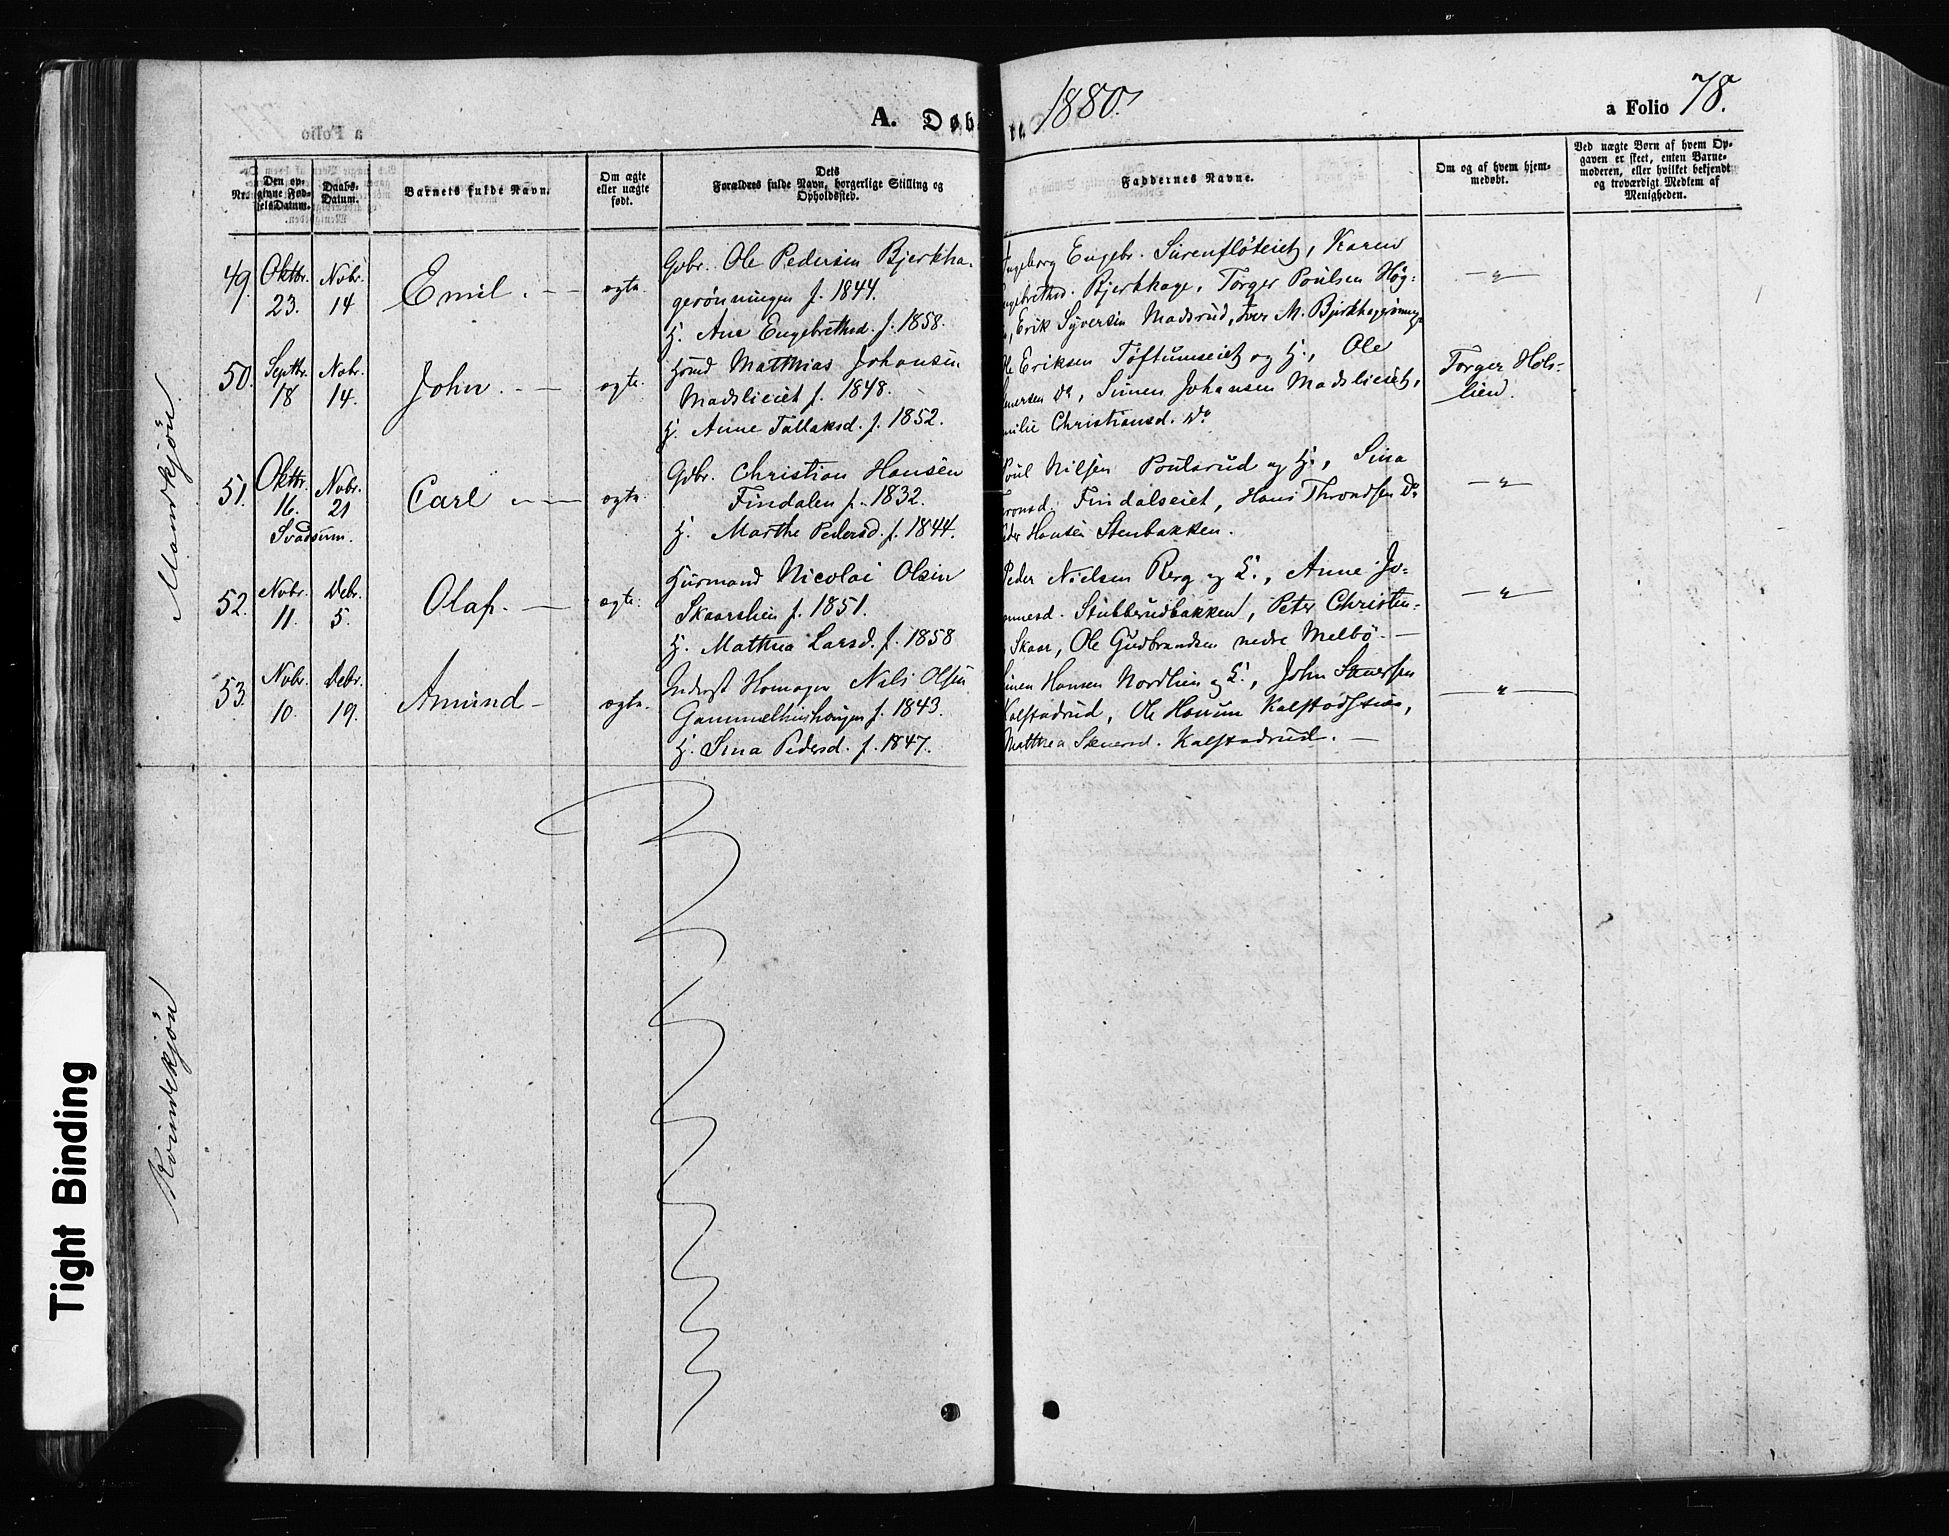 A. Døb
te. 1880.
a Folio 78.
Nr.
Den op-
givne Fød-
selsDatum.
Daabs-
Datum.
Barnets fulde Navn.
Om ægte
eller uægte
født.
Dets
Forældres fulde Navn, borgerlige Stilling og
Opholdssted.
Faddernes Navne.
Om og af hvem hjem-
medøbt.
Ved uægte Børn af hvem Op-
gaven er skeet, enten Barne-
moderen, eller hvilket bekjendt
og troværdigt Medlem af
Menigheden.
Mandkjøn
49. Oktbr. 23. Novbr. 14 Emil. — ægte.
Gbr. Ole Pedersen Bjerkha-
gerønningen f. 1844.
H. Ane Engebrethsd. f. 1858.
Ingeborg Engebr. Sürenflöteiet, Karen
Engebrethsd. Bjerkhage, Torger Poulsen Hög-
Erik Syversen Madsrud, Iver M. Bjerkhagerønninge
— „ —
50. Septbr. 18 Nobr. 14. John. — ægte.
Hsmd Matthias Johansen
Madslieiet f. 1848.
H. Anne Tollaksd. f. 1852.
Ole Eriksen Toftumseiet og H., Ole
Do, Simen Johansen Madslieiet,
Christiansd. Do
Torger Hols-
lien.
51. Oktbr. 16. Nobr. 21 Carl — ægte
Svadsum.
Gbr. Christian Hansen
Findalen f. 1832.
H. Marthe Pedersd. f. 1844.
Poul Nilsen Poulsrud og H., Sina
Tronsd. Findalseiet, Hans Throndsen Do
Peder Hansen Stenbakken.
— „ —
52. Novbr. 11. Debr. 5. Olaf. — ægte.
Huusmand Nicolai Olsen
Skaarslien f. 1851.
H. Mathea Larsd. f. 1858
Peder Nielsen Berg og H., Anne Jo-
Stubberudbakken, Peter Christen-
Skaar, Ole Gudbrandsen nedre Melbö. —
— „ —
53. Nobr. 10. Debr. 19. Amund — ægte.
Inderst Nils Olsen
Gammelhuushaugen f. 1843.
H. Sina Pedersd. f. 1847.
Simen Hansen Nordlien og H., John
Kalstadrud, Ole Hansen
Mathea Kalstadrud. —
— „ —
Kvindekjøn
Tight Binding